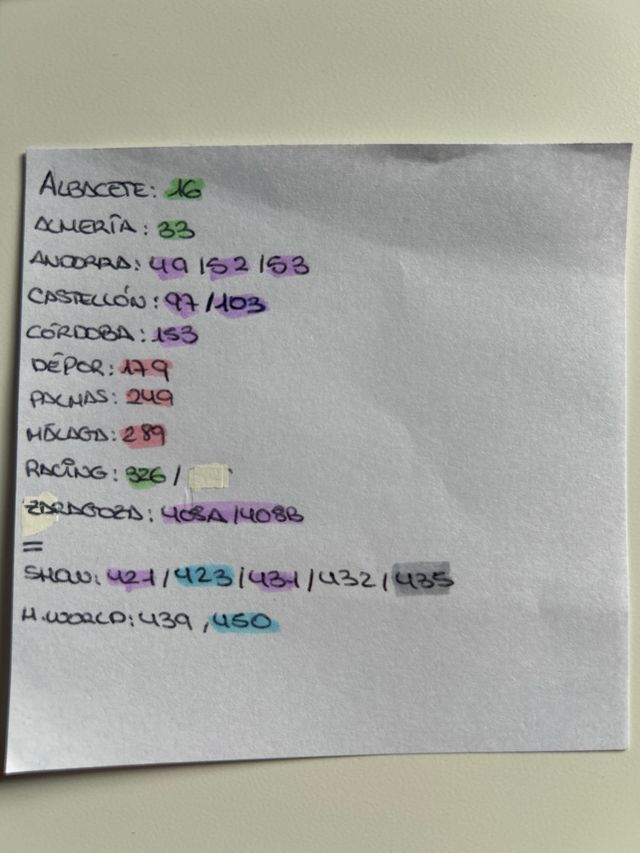 ALBACETE: 16
ALMERÍA: 33
ANDORRA: 49/52/53
CASTELLÓN: 97/103
CÓRDOBA: 153
DÉPOR: 179
PALMAS: 249
MÁLAGA: 289
RACING: 326/
ZARAGOZA: 408A/408B
=
SHOW: 421/423/431/432/435
M.WORLD: 439, 450